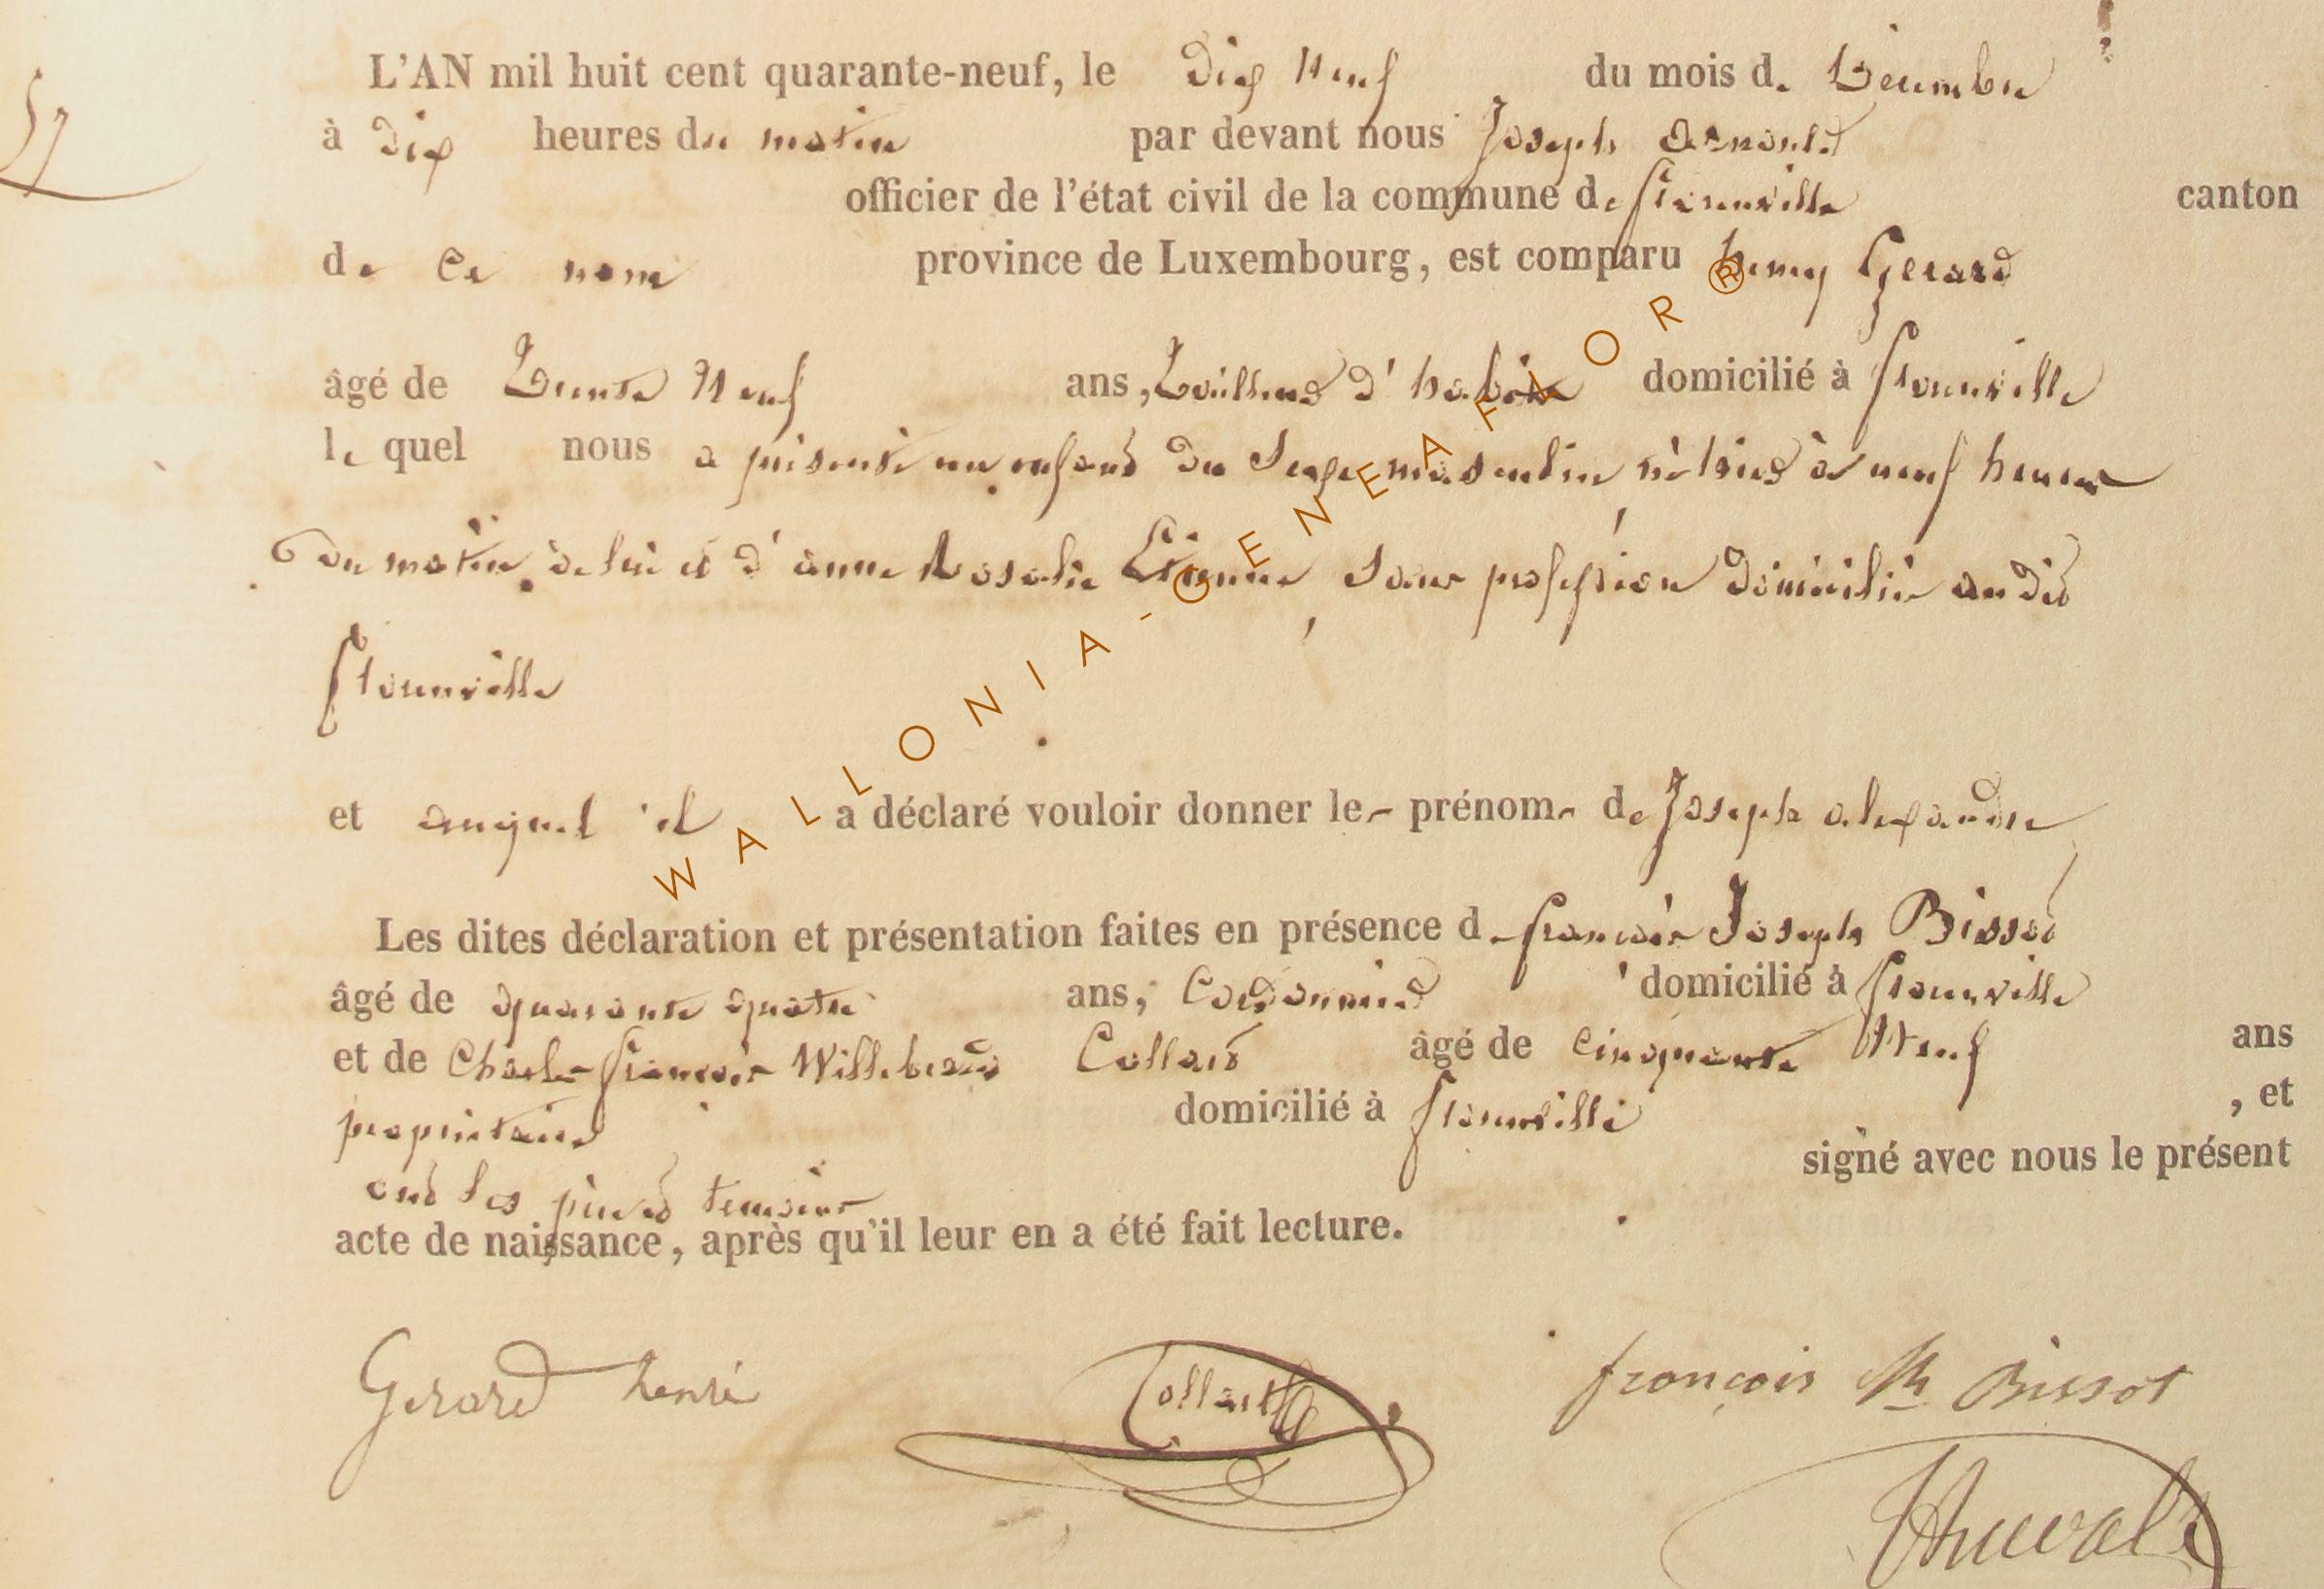 L'AN mil huit cent quarante-neuf, le dix Neuf du mois de Decembre
57
à dix heures du matin par devant nous Joseph arnould
officier de l'état civil de la commune de florenville canton
de Ce nom province de Luxembourg, est comparu henry Gerard
âgé de Trente Neuf ans, Tailleur d'habits domicilié à florenville
le quel nous a presenté un enfant du Sexe masculin né hier à neuf heures
du matin de lui et d'anne Rosalie Etienne, Sans profession domiciliée au dit
florenville
et auquel il a déclaré vouloir donner les prénoms de Joseph alexandre
Les dites déclaration et présentation faites en présence de francois Joseph Bissot
âgé de quarante quatre ans, Cordonnier domicilié à florenville
et de Charles francois Willebrord Collard âgé de cinquante Neuf ans
propriétaire domicilié à florenville, et
ont les père et temoins signé avec nous le présent
acte de naissance, après qu'il leur en a été fait lecture.
Gerard henri Collard françois Bissot
WALLONIA-GENEAFLOR®